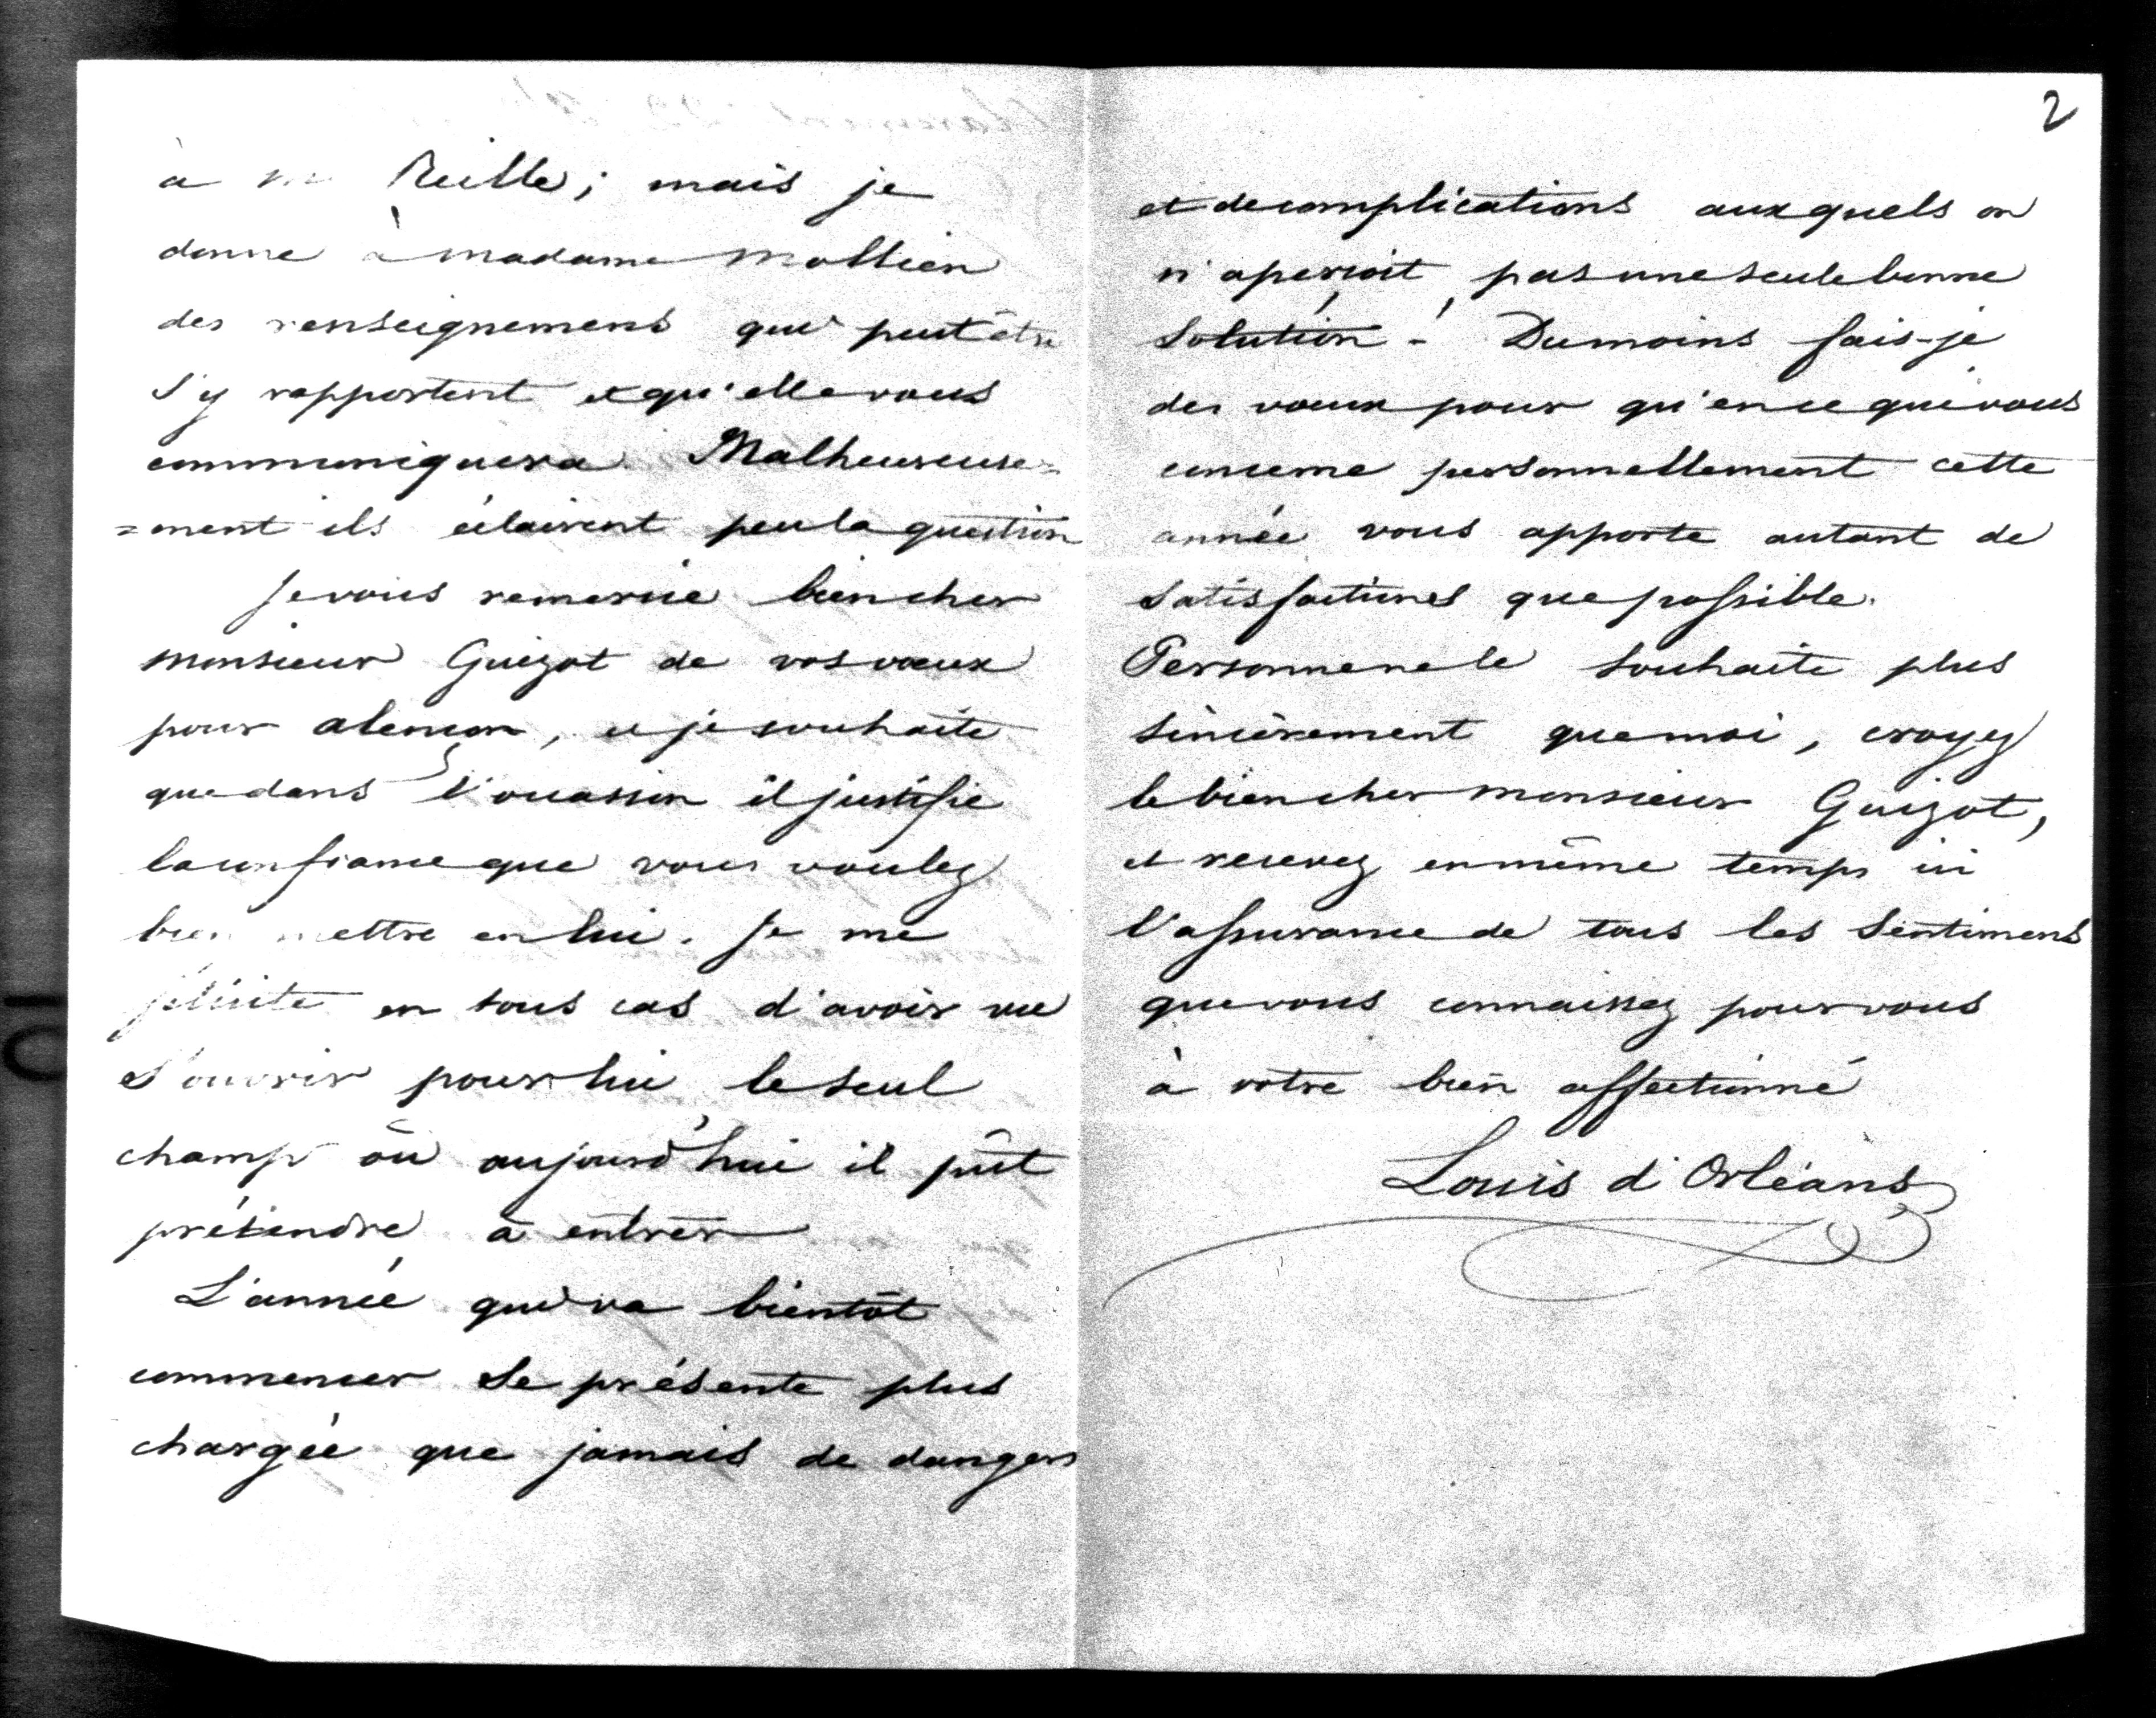 à M. Reille; mais je
donne à madame Mollien
des renseignemens qui peut être
s'y rapportent et qu'elle vous
communiquera. Malheureuse=
=ment ils éclairent peu la question
Je vous remercie bien cher
monsieur Guizot de vos vœux
pour alençon, et je souhaite
que dans l'occasion il justifie
la confiance que vous voulez
bien mettre en lui. Je me
félicite en tous cas d'avoir vu
s'ouvrir pour lui le seul
champ où aujourd'hui il pût
prétendre à entrer
L'année qui va bientôt
commencer se présente plus
chargée que jamais de dangers
2
et de complications auxquels on
n'aperçoit pas une seule bonne
solution! Du moins fais-je
des vœux pour qu'en ce qui vous
concerne personnellement cette
année vous apporte autant de
satisfactions que possible.
Personne ne le souhaite plus
sincèrement que moi, croyez
le bien cher monsieur Guizot,
et recevez en même temps ici
l'assurance de tous les sentimens
que vous connaissez pour vous
à votre bien affectionné
Louis d'Orléans